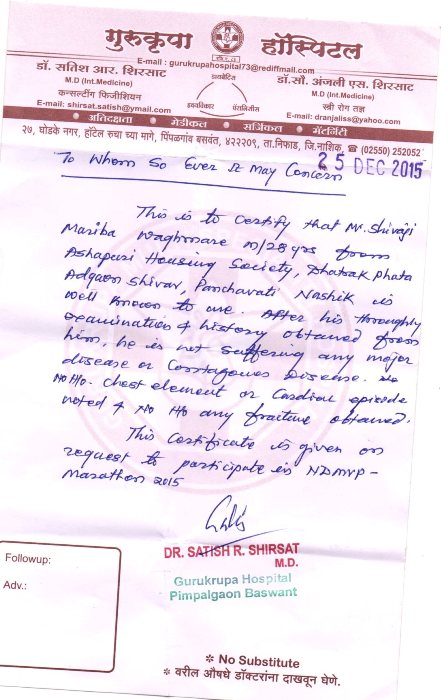 गुरुकृपा हॉस्पिटल
E-mail : gurukrupahospital73@rediffmail.com
डॉ. सतिश आर. शिरसाट
M.D (Int.Medicine)
कन्सल्टींग फिजीशियन
E-mail: shirsat.satish@ymail.com
डॉ.सौ. अंजली एस. शिरसाट
M.D (Int.Medicine)
स्त्री रोग तज्ञ
E-mail: dranjaliss@yahoo.com
अतिदक्षता मेडीकल सर्जिकल मॅटर्निटी
२७, घोडके नगर, हॉटेल रुचा च्या मागे, पिंपळगांव बसवंत, ४२२२०९, ता.निफाड, जि.नाशिक, ☎ (02550) 252052
25 DEC 2015
To Whom So Ever It May Concern
This is to certify that Mr. Shivaji
Mariba Waghmare m/28yrs from
Ashapuri Housing Society, Dhatrak Phata
Adgaon Shivar, Panchavati Nashik is
well known to me. After his thoroughly
examination & history obtained from
him, he is not suffering any major
disease or Contagious Disease. No
No H/o. Chest element or Cardiac episode
noted & No H/o any fracture obtained.
This Certificate is given on
request to participate in NDMVP -
Marathon 2015
DR. SATISH R. SHIRSAT
M.D.
Gurukrupa Hospital
Pimpalgaon Baswant
Followup:
Adv.:
* No Substitute
* वरील औषधे डॉक्टरांना दाखवून घेणे.